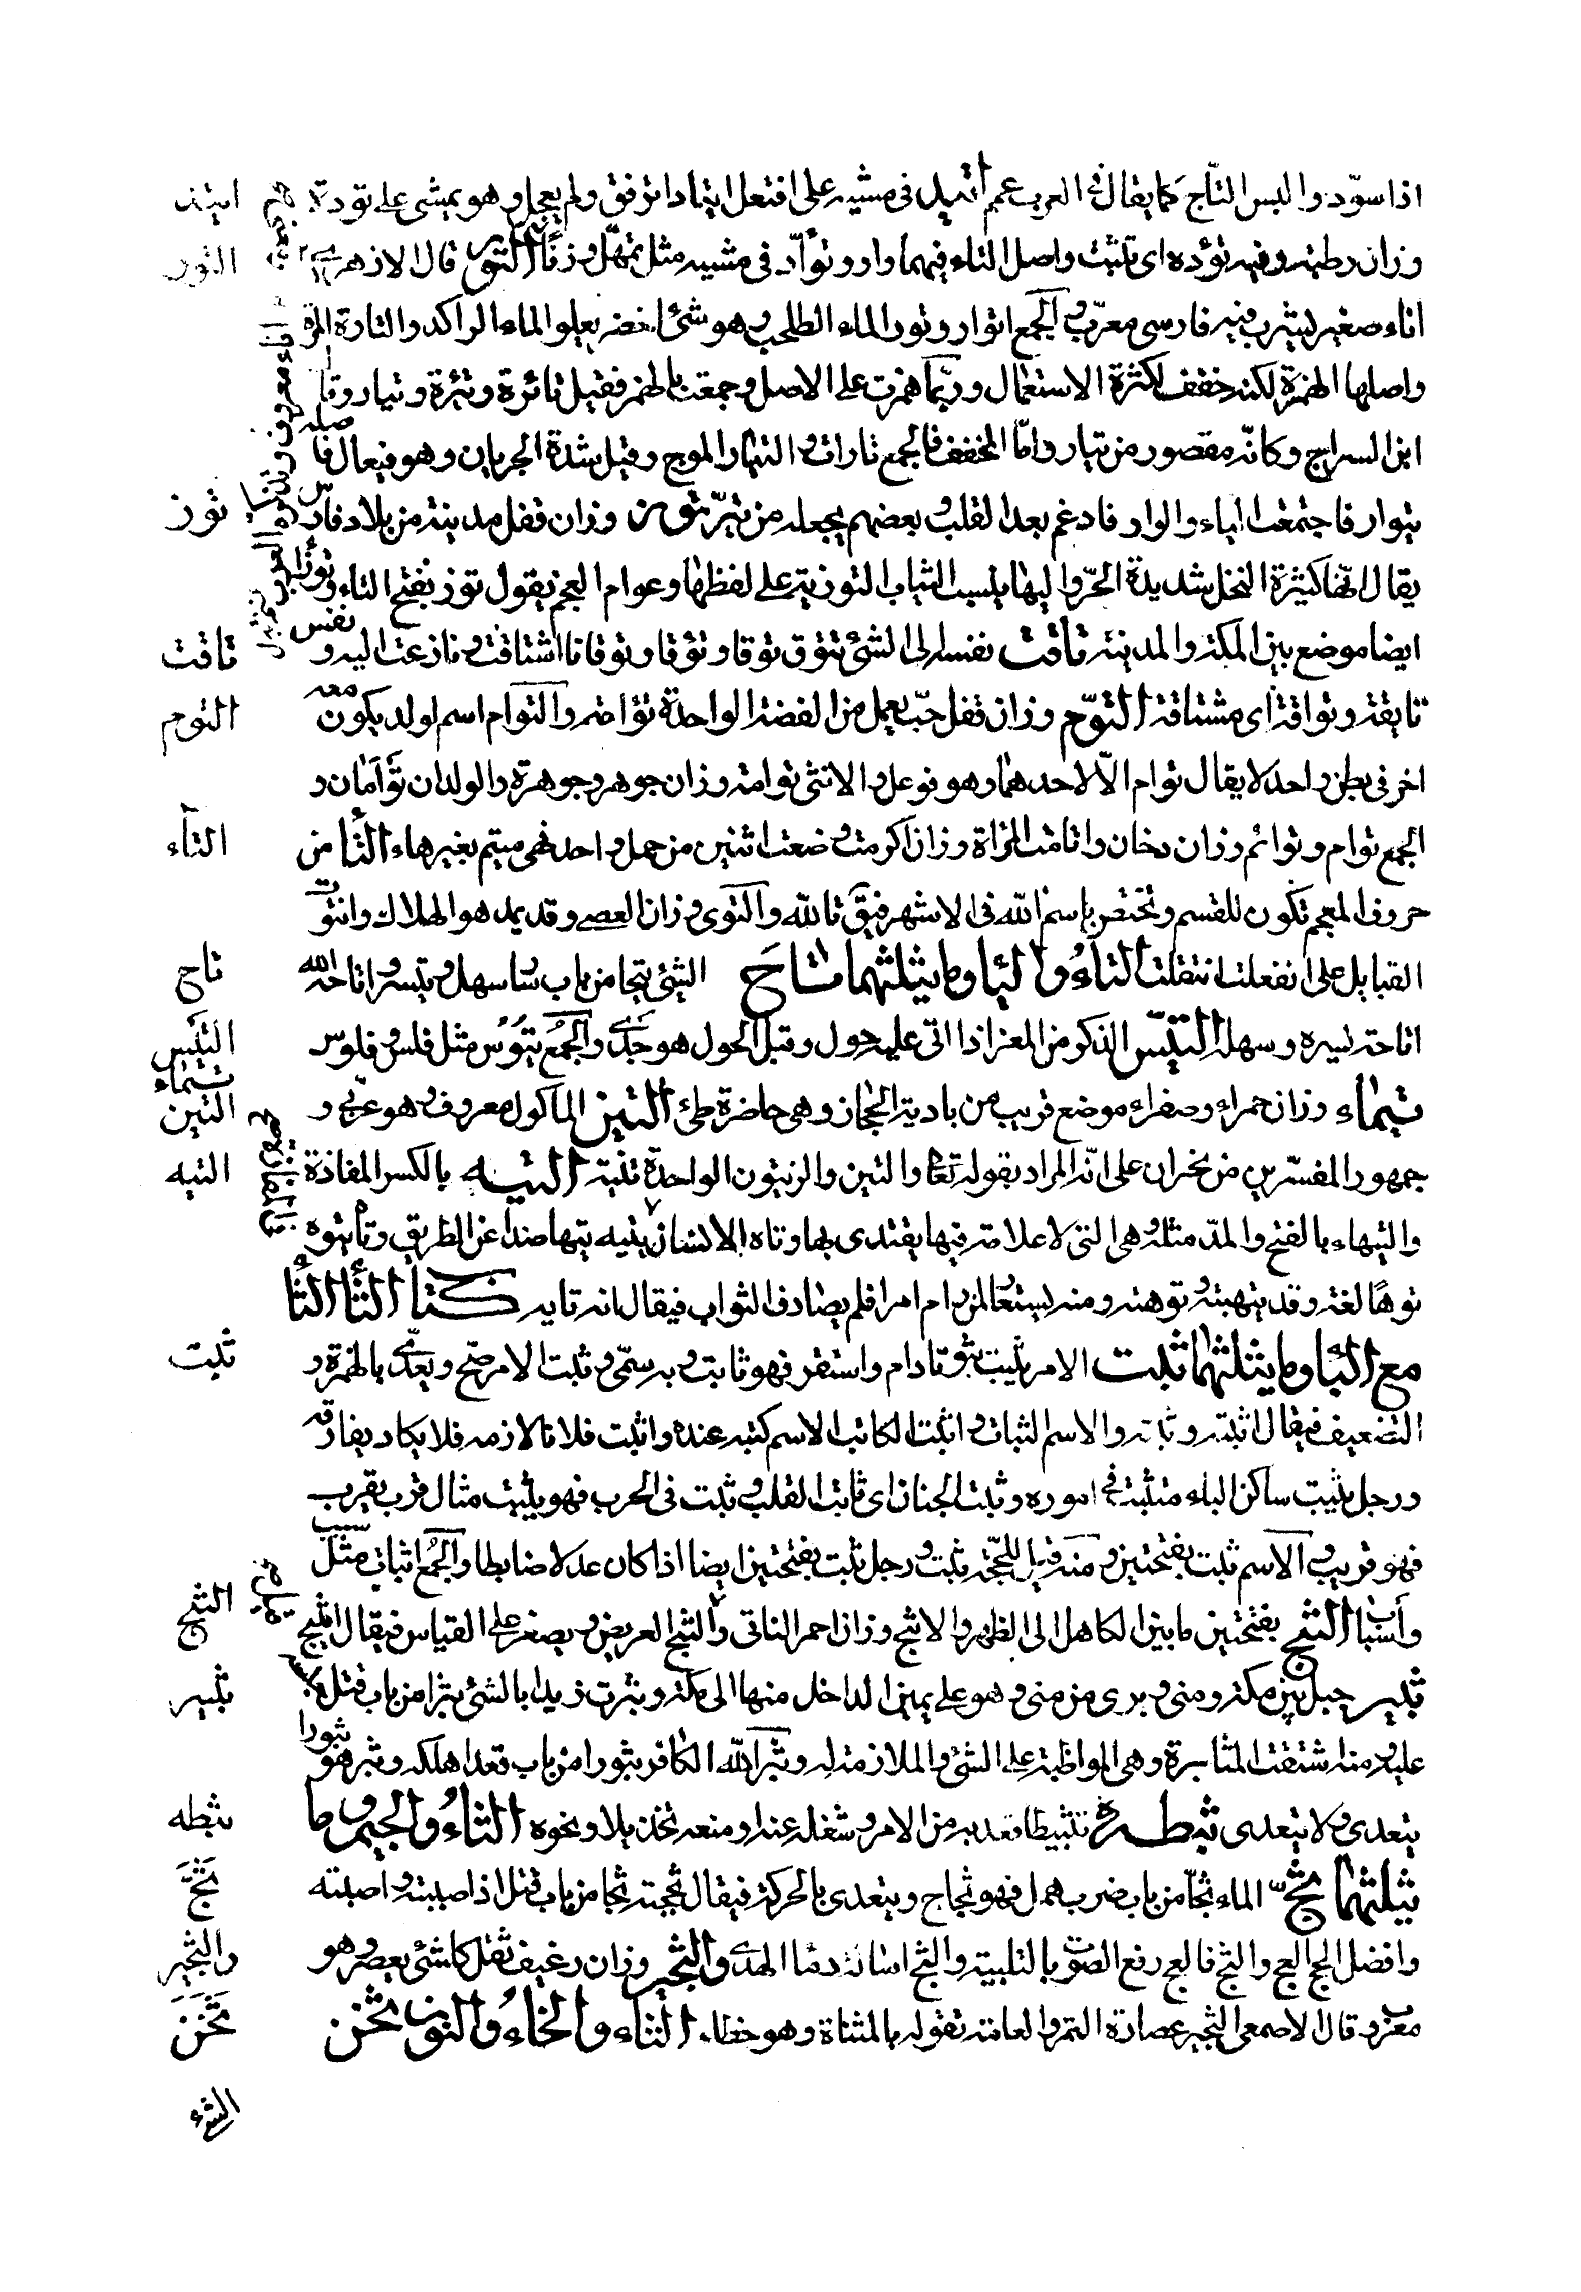 اذا سوّد والبس التّاج كما يقال في العرب عمم اتيد في مشيه على افتعل اتيادا ترفق ولم يعجل وهو يمشي على تودة
وزان رطبه وفيه تؤده اى تثبت واصل التاء فيهما واو وتوأّد في مشيه مثل تمهّل وزنًا التور قال الازهري
اناء صغير يشرب فيه فارسى معرّب والجمع اتوار وتور الماء الطحلب وهو شئ اخضر يعلو الماء الراكد والتارة المرّة
واصلها الهمزة لكنه خفف لكثرة الاستعمال وربّما همزت على الاصل وجمعت بالهمز فقيل تائرة وتئرة وتيار وقال
ابن السراج وكانّه مقصور من تيار وامّا المخفف فالجمع تارات والتيار الموج وقيل شدة الجريان وهو فيعال اصله
تيوار فاجتمعت الياء والواو فادغم بعد القلب وبعضهم يجعله من تيّر توز وزان قفل مدينة من بلاد فارس
يقال انّها كثيرة النخل شديدة الحرّ واليها ينسب الثياب التوزية على لفظها وعوام العجم يقول توز بفتح التاء وتوز
ايضا موضع بين المكة والمدينة تاقت نفسه الى الشئ تتوق توقا وتؤقا وتوقانا اشتاقت ونازعت اليه ونفس
تايقة وتواقة اى مشتاقة التوم وزان قفل حبّ يعمل من الفضة الواحدة تؤامة والتوام اسم لولد يكون معه
اخر في بطن واحد لا يقال توام الّا لاحدهما وهو فوعل والانثى توامة وزان جوهر وجوهرة والولدان توأمان و
الجمع توام وتوائم وزان دخان واتامت المرأة وزان اكرمت وضعت اثنين من حمل واحد فهى متيم بغير هاء التا من
حروف المعجم تكون للقسم وتختص باسم الله في الاشهر فيق تالله والتوى وزان الحصى وقد يمد هو الهلاك وانتوت
القبايل على انفعلت انتقلت التاء والياء وما يثلثهما تاح الشئ يتيحا من باب سهل وتيسر واتاحه الله
اتاحة يسره وسهله التيس الذكر من المعز اذا اتى عليه حول وقبل الحول هو جدى والجمع تيوس مثل فلس وفلوس
تيماء وزان حمراء وصفراء موضع قريب من بادية الحجاز وهى حاضرة طى التين الماكول معروف وهو عربى و
جمهور المفسرين على انّه المراد بقوله تعالى والتين والزيتون الواحدة تينة التيه بالكسر المفازة
والتيهاء بالفتح والمدّ مثله وهى التى لا علامة فيها يهتدى بها وتاه الانسان يتيه تيها ضل عن الطريق وتاه يتوه
توهًا لغة وقد تيهته وتوهته ومنه يستعار لمن رام امرا فلم يصادف الثواب فيقال انه تايه كتاب الثا الثا
مع البا وما يثلثهما ثبت الامر يثبت ثبوتا دام واستقر فهو ثابت وبه سمّى وثبت الامر صح ويعدّى بالهمزة و
التضعيف فيقال اثبته وثبته والاسم الثبات واثبت الكاتب الاسم كتبه عنده واثبت فلانا لازمه فلا يكاد يفارقه
ورجل ثبت ساكن الباء متثبت في اموره وثبت الجنان اى ثابت القلب وثبت في الحرب فهو ثبيت مثال قرب يقرب
فهو قريب والاسم ثبت بفتحتين ومنه قيل للحجّة ثبت ورجل ثبت بفتحتين ايضا اذا كان عدلا ضابطا والجمع اثبات مثل سبب
وأسباب الثبج بفتحتين ما بين الكاهل الى الظهر والاثبج وزان احمر الناتى والثبج العريض ويصغر على القياس فيقال اثيبج
ثبير جبل بين مكة ومنى ويرى من منى وهو على يمين الداخل منها الى مكة وثبرت زيدا بالشئ ثبرا من باب قتل حبسته
عليه ومنه اشتقت المثابرة وهى المواظبة على الشئ والملازمة له وثبر الله الكافر ثبورا من باب قعد اهلكه وثبر هو ثبورا
يتعدى ولا يتعدى ثبطه تثبيطا قعد به من الامر وشغله عنه او منعه تخذيلا ونحوه الثاء والجيم وما
يثلثهما ثجّ الماء ثجّا من باب ضرب همل فهو ثجاج ويتعدى بالحركة فيقال ثججته ثجا من باب قتل اذا صببته واصببته
وافضل الحج العج والثج فالعج رفع الصوت بالتلبية والثج اسالة دما الهدى والثجير وزان رغيف ثفل كل شئ يعصر وهو
معرب وقال الاصمعى الثجير عصارة التمر والعامة تقوله بالمثناة وهو خطاء الثاء والخاء والنون ثخن
اتيد
التور
توز
تاقت
التوم
التاء
تاح
التيس
تيماء
التين
التيه
ثبت
الثبج
ثبير
ثبطه
ثجّ
والثجير
ثخن
الشئ